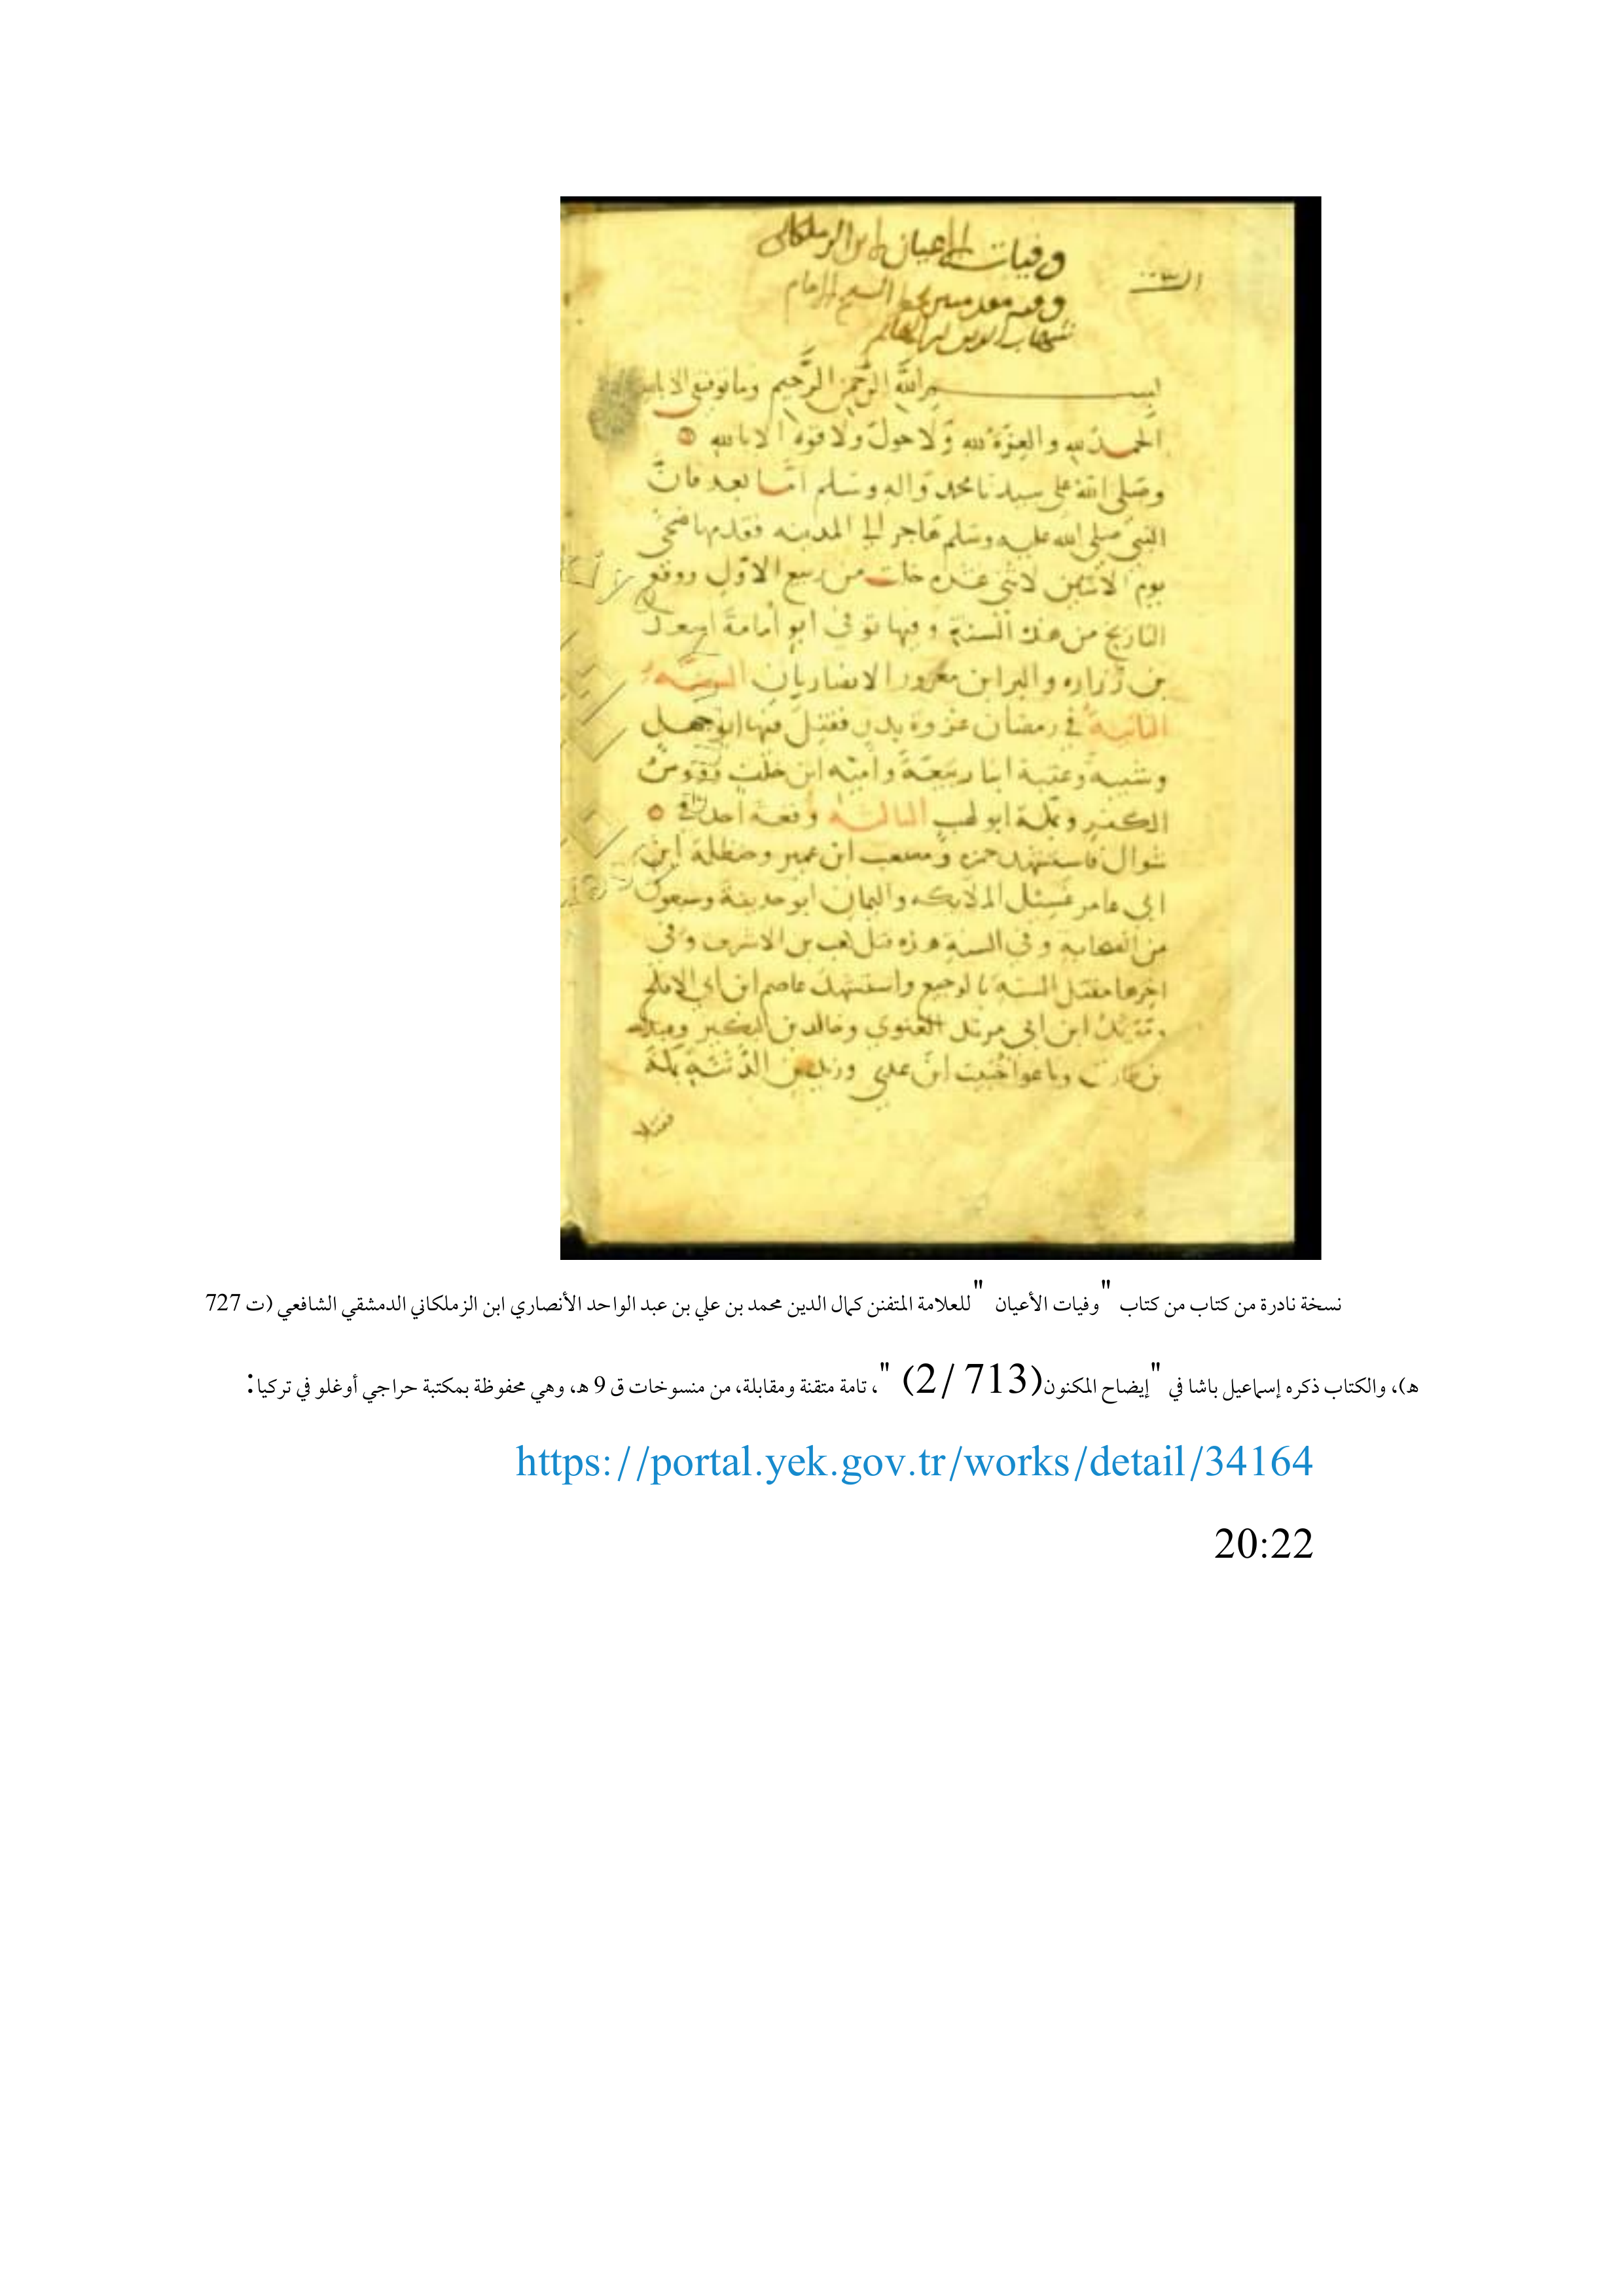 وفيات الاعيان لابن الزملكاني
بسم الله الرحمن الرحيم وما توفيقي الا بالله
الحمد لله والعزة لله ولا حول ولا قوة الا بالله
وصلى الله على سيدنا محمد واله وسلم اما بعد فان
النبي صلى الله عليه وسلم هاجر الى المدينه فقدمها ضحى
يوم الاثنين لاثنى عشره خلت من ربيع الاول ووقع
التاريخ من هذه السنة وفيها توفي ابو امامة اسعد
بن زراره والبرا بن معرور الانصاريان السنه
الثانية في رمضان غزوة بدر فقتل فيها ابو جهل
وشيبة وعتبة ابنا ربيعة وامية ابن خلف ورؤوس
الكفر وبمكة ابو لهب الثالثه وقعة احد في
شوال فاستشهد حمزه ومصعب ابن عمير وحنظلة ابن
ابي عامر غسيل الملايكه واليمان ابو حذيفة وسبعون
من الصحابه وفي السنة هذه قتل كعب بن الاشرف وفي
اخرها مقتل الستة بالرجيع واستشهد عاصم ابن ابي الافلح
ومرثد ابن ابي مرثد الغنوي وخالد بن البكير وعبدالله
بن طارق وباعوا خبيب ابن عدي وزيد بن الدثنة بمكة
فقتلا
نسخة نادرة من كتاب من كتاب "وفيات الأعيان" للعلامة المتفنن كمال الدين محمد بن علي بن عبد الواحد الأنصاري ابن الزملكاني الدمشقي الشافعي (ت 727
هـ)، والكتاب ذكره إسماعيل باشا في "إيضاح المكنون(2/713)"، تامة متقنة ومقابلة، من منسوخات ق 9 هـ، وهي محفوظة بمكتبة حراجي أوغلو في تركيا:
https://portal.yek.gov.tr/works/detail/34164
20:22